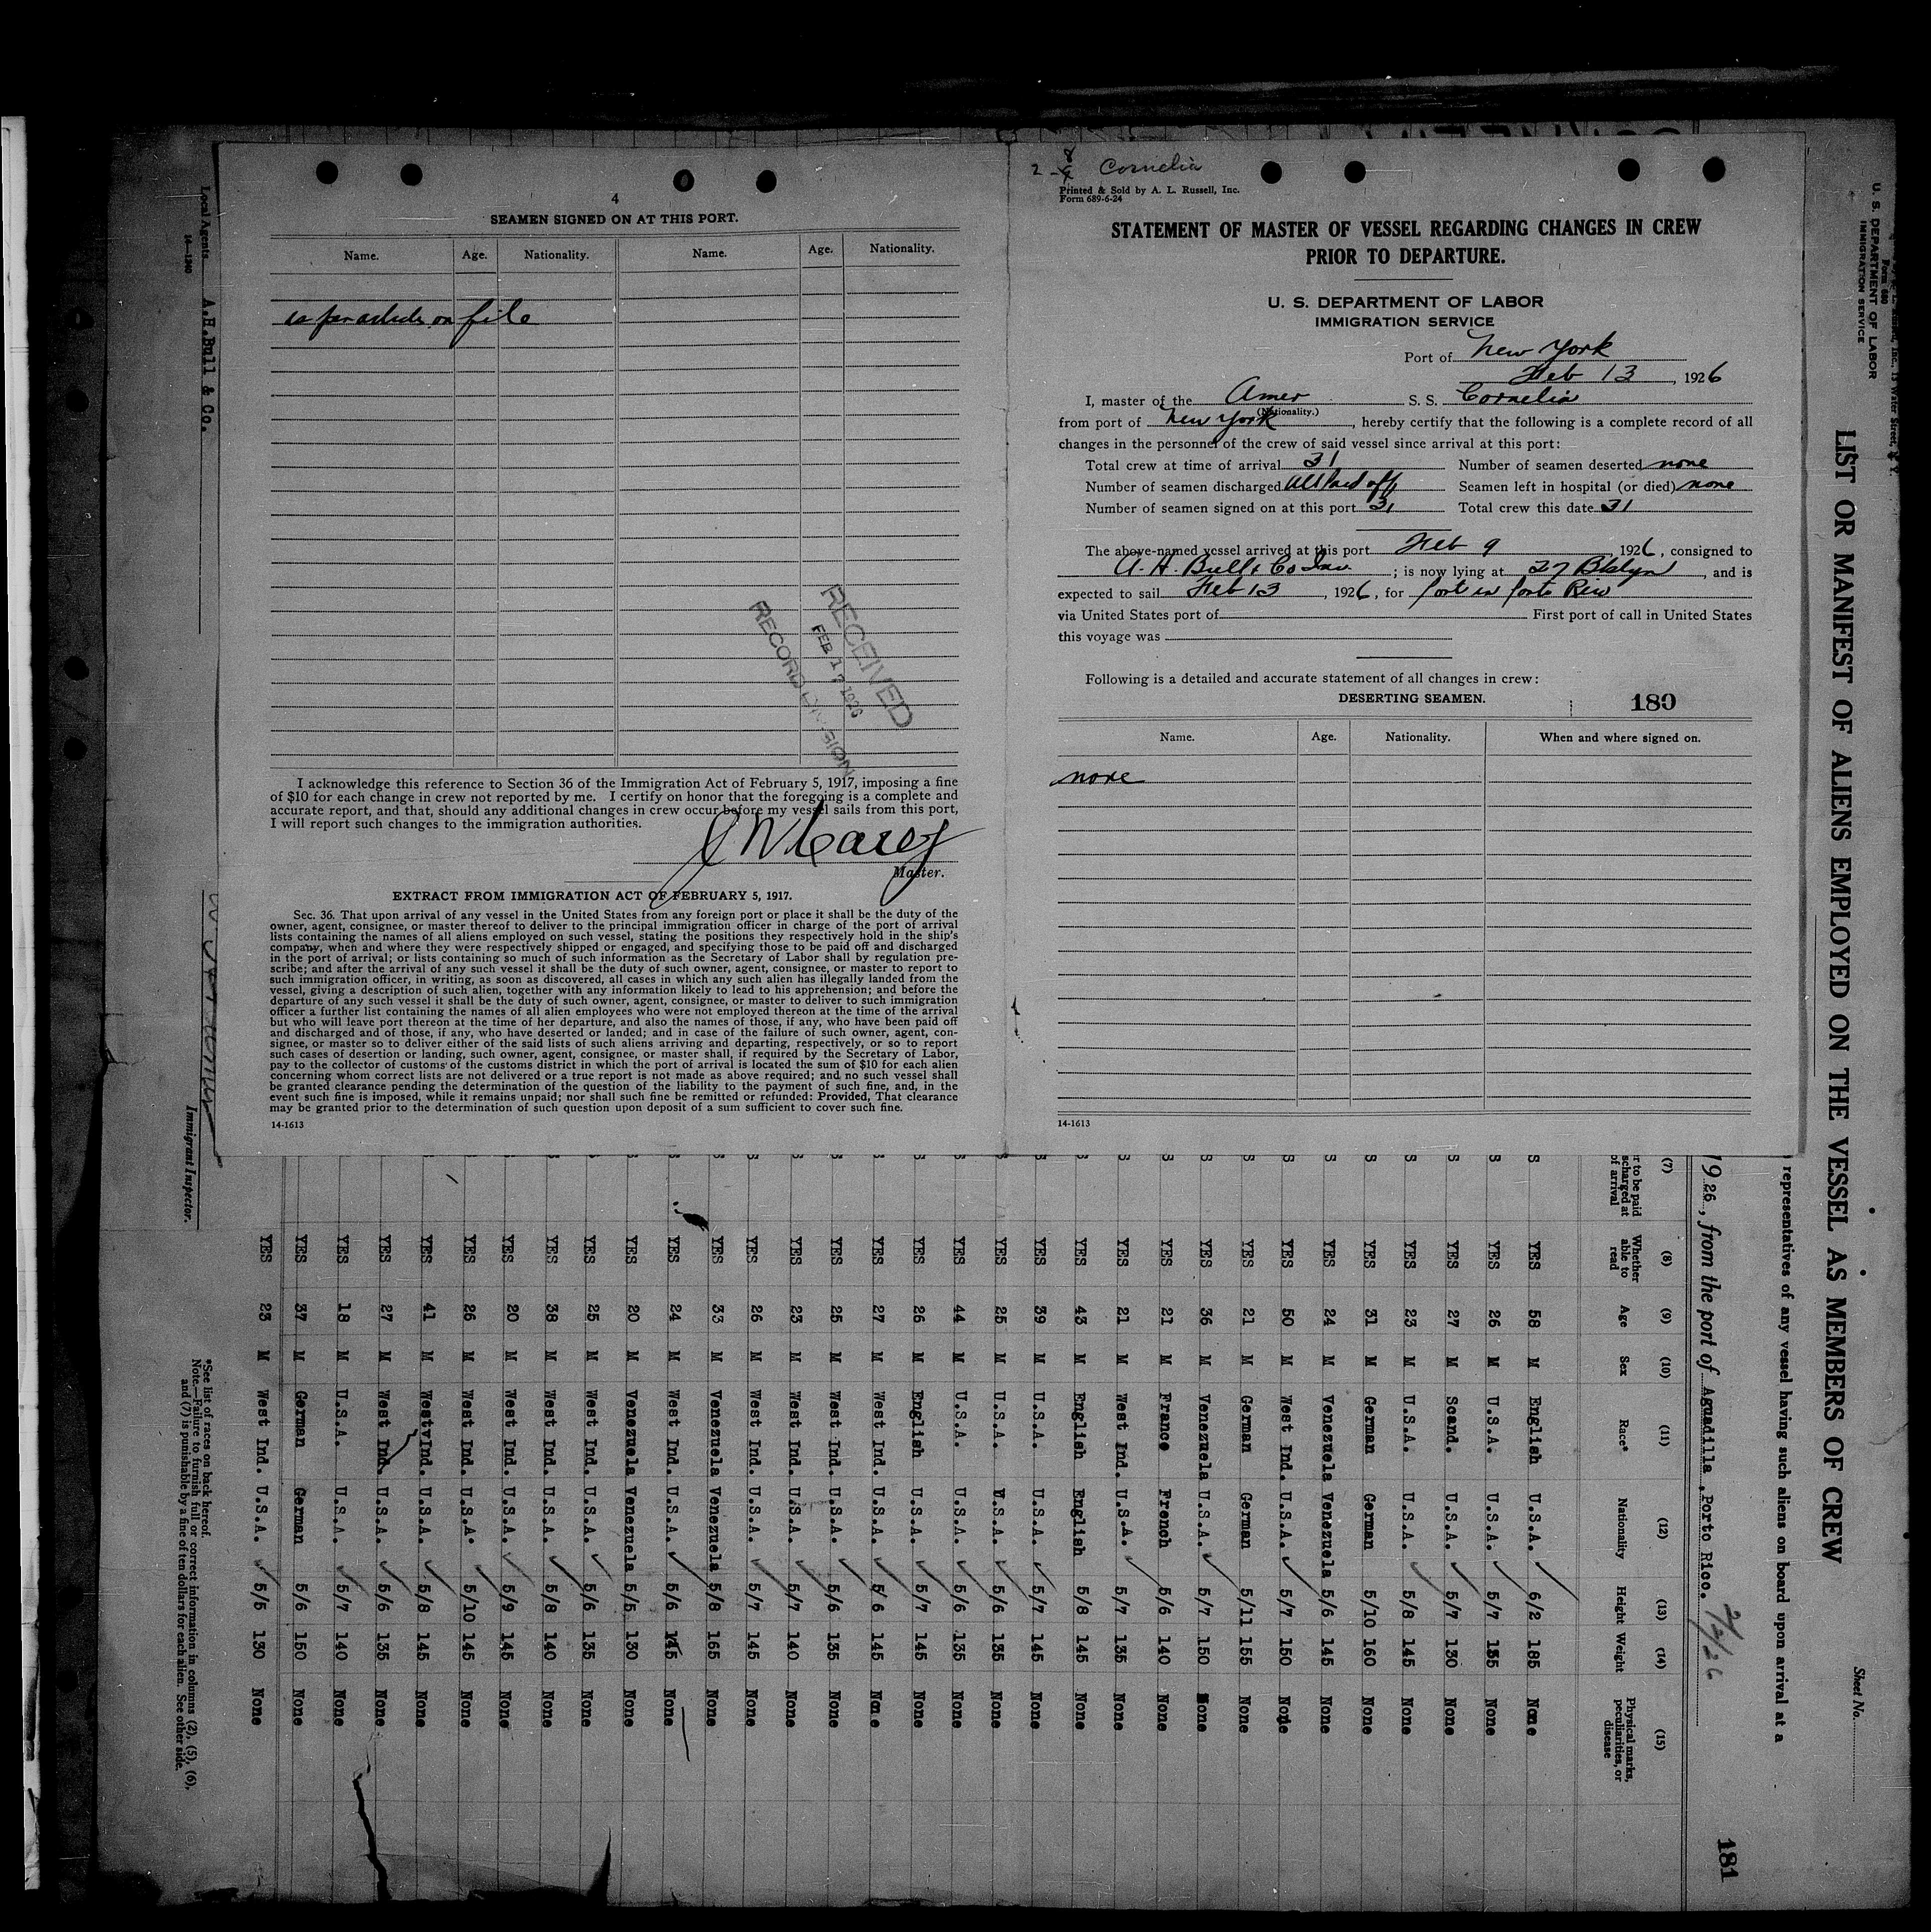 4
SEAMEN SIGNED ON AT THIS PORT.
Name. Age. Nationality. Name. Age. Nationality.
as per articles on file
RECEIVED
FEB 17 1926
RECORD DIVISION
I acknowledge this reference to Section 36 of the Immigration Act of February 5, 1917, imposing a fine
of $10 for each change in crew not reported by me. I certify on honor that the foregoing is a complete and
accurate report, and that, should any additional changes in crew occur before my vessel sails from this port,
I will report such changes to the immigration authorities.
J W Carey
Master.
EXTRACT FROM IMMIGRATION ACT OF FEBRUARY 5, 1917.
Sec. 36. That upon arrival of any vessel in the United States from any foreign port or place it shall be the duty of the
owner, agent, consignee, or master thereof to deliver to the principal immigration officer in charge of the port of arrival
lists containing the names of all aliens employed on such vessel, stating the positions they respectively hold in the ship's
company, when and where they were respectively shipped or engaged, and specifying those to be paid off and discharged
in the port of arrival; or lists containing so much of such information as the Secretary of Labor shall by regulation pre-
scribe; and after the arrival of any such vessel it shall be the duty of such owner, agent, consignee, or master to report to
such immigration officer, in writing, as soon as discovered, all cases in which any such alien has illegally landed from the
vessel, giving a description of such alien, together with any information likely to lead to his apprehension; and before the
departure of any such vessel it shall be the duty of such owner, agent, consignee, or master to deliver to such immigration
officer a further list containing the names of all alien employees who were not employed thereon at the time of the arrival
but who will leave port thereon at the time of her departure, and also the names of those, if any, who have been paid off
and discharged and of those, if any, who have deserted or landed; and in case of the failure of such owner, agent, con-
signee, or master so to deliver either of the said lists of such aliens arriving and departing, respectively, or so to report
such cases of desertion or landing, such owner, agent, consignee, or master shall, if required by the Secretary of Labor,
pay to the collector of customs of the customs district in which the port of arrival is located the sum of $10 for each alien
concerning whom correct lists are not delivered or a true report is not made as above required; and no such vessel shall
be granted clearance pending the determination of the question of the liability to the payment of such fine, and, in the
event such fine is imposed, while it remains unpaid; nor shall such fine be remitted or refunded: Provided, That clearance
may be granted prior to the determination of such question upon deposit of a sum sufficient to cover such fine.
14-1613
2-8 Cornelia
Printed & Sold by A. L. Russell, Inc.
Form 689-6-24
STATEMENT OF MASTER OF VESSEL REGARDING CHANGES IN CREW
PRIOR TO DEPARTURE.
U. S. DEPARTMENT OF LABOR
IMMIGRATION SERVICE
Port of New York
Feb 13, 1926
I, master of the Amer S. S. Cornelia
(Nationality.)
from port of New York, hereby certify that the following is a complete record of all
changes in the personnel of the crew of said vessel since arrival at this port:
Total crew at time of arrival 31 Number of seamen deserted none
Number of seamen discharged all Paid off Seamen left in hospital (or died) none
Number of seamen signed on at this port 31 Total crew this date 31
The above-named vessel arrived at this port Feb 9 1926, consigned to
A. H. Bull & Co Inc ; is now lying at 27 Bklyn, and is
expected to sail Feb 13, 1926, for port in Porto Rico
via United States port of First port of call in United States
this voyage was
Following is a detailed and accurate statement of all changes in crew:
DESERTING SEAMEN. 180
Name. Age. Nationality. When and where signed on.
none
14-1613
U. S. DEPARTMENT OF LABOR
IMMIGRATION SERVICE
Sheet No.
LIST OR MANIFEST OF ALIENS EMPLOYED ON THE VESSEL AS MEMBERS OF CREW
representatives of any vessel having such aliens on board upon arrival at a
1926, from the port of Aguadilla, Porto Rico.
181
(7) (8) (9) (10) (11) (12) (13) (14) (15)
r to be paid scharged at of arrival Whether able to read Age Sex Race* Nationality Height Weight Physical marks, peculiarities, or disease
S YES 58 M English U.S.A. 6/2 185 None
S YES 26 M U.S.A. U.S.A. 5/7 135 None
S YES 27 M Scand. U.S.A. 5/7 130 None
S YES 23 M U.S.A. U.S.A. 5/8 145 None
S YES 31 M German German 5/10 160 None
S YES 24 M Venezuela Venezuela 5/6 145 None
S YES 50 M West Ind. U.S.A. 5/7 150 None
S YES 21 M German German 5/11 155 None
S YES 36 M Venezuela U.S.A. 5/7 150 None
S YES 21 M France French 5/6 140 None
S YES 21 M West Ind. U.S.A. 5/7 135 None
S YES 43 M English English 5/8 145 None
S YES 39 M U.S.A. U.S.A. 5/7 145 None
S YES 25 M U.S.A. U.S.A. 5/6 135 None
S YES 44 M U.S.A. U.S.A. 5/6 135 None
S YES 26 M English U.S.A. 5/7 145 None
S YES 27 M West Ind. U.S.A. 5/6 145 None
S YES 25 M West Ind. U.S.A. 5/6 135 None
S YES 23 M West Ind. U.S.A. 5/7 140 None
S YES 26 M West Ind. U.S.A. 5/7 145 None
S YES 33 M Venezuela Venezuela 5/8 165 None
S YES 24 M West Ind. U.S.A. 5/6 145 None
S YES 20 M Venezuela Venezuela 5/5 130 None
S YES 25 M West Ind. U.S.A. 5/6 135 None
S YES 38 M West Ind. U.S.A. 5/8 140 None
S YES 20 M West Ind. U.S.A. 5/9 145 None
S YES 26 M West Ind. U.S.A. 5/10 145 None
S YES 41 M West Ind. U.S.A. 5/8 145 None
S YES 27 M West Ind. U.S.A. 5/6 135 None
S YES 18 M U.S.A. U.S.A. 5/7 140 None
YES 37 M German German 5/6 150 None
YES 23 M West Ind. U.S.A. 5/5 130 None
*See list of races on back hereof.
Note.—Failure to furnish full or correct information in columns (2), (5), (6),
and (7) is punishable by a fine of ten dollars for each alien. See other side.
Local Agents A.H.Bull & Co.
14-1240
Immigrant Inspector.